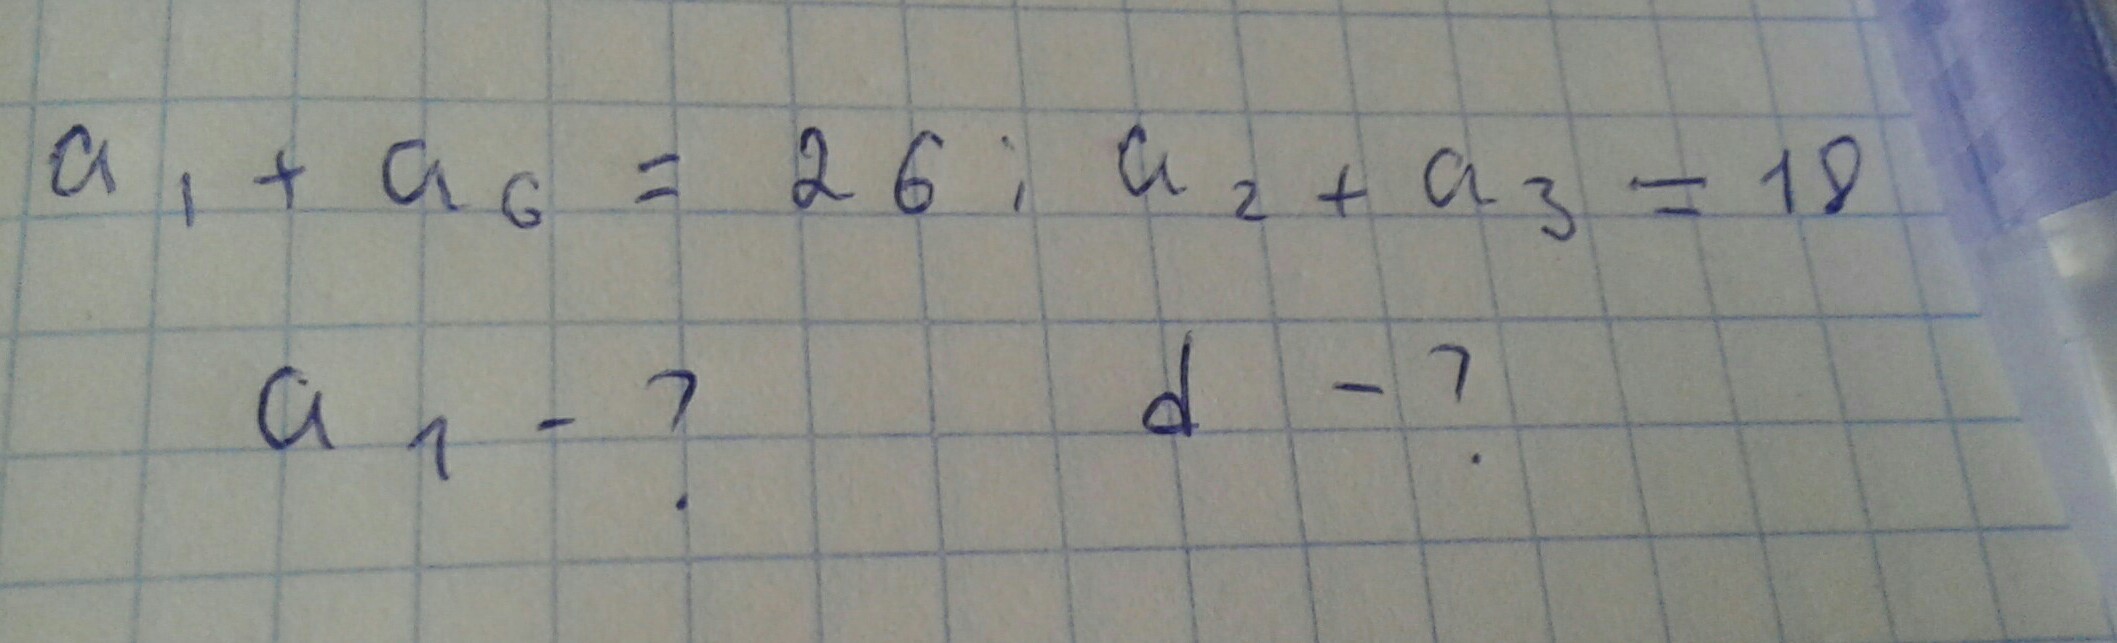 a₁ + a₆ = 26; a₂ + a₃ = 18
a₁ - ? d - ?